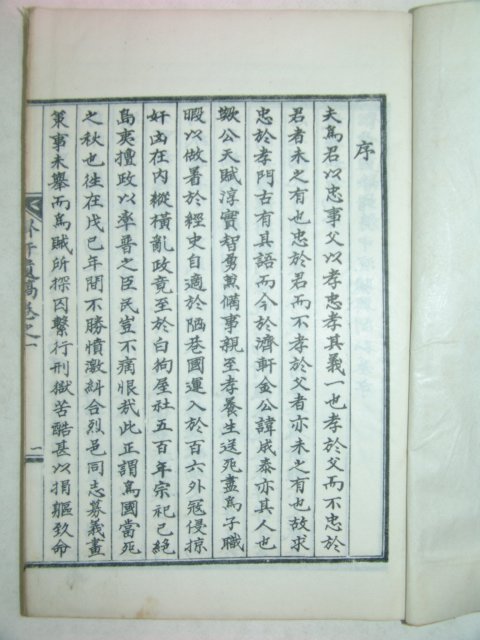 序
夫爲君以忠事父以孝忠孝其義一也孝於父而不忠於
君者未之有也忠於君而不孝於父者亦未之有也故求
忠於孝門古有其語而今於濟軒金公諱成泰亦其人也
歟公天賦淳實智勇兼備事親至孝養生送死盡爲子職
暇以做着於經史自適於陋巷國運入於百六外寇侵掠
奸凶在內縱橫亂政竟至於白狗屋社五百年宗祀已絶
島夷擅政以率普之臣民豈不痛恨哉此正謂爲國當死
之秋也徃在戊己年間不勝憤激糾合烈邑同志募義畫
策事未擧而爲賊所探囚繫行刑獄苦酷甚以捐軀致命
軒遺稿卷之一
一